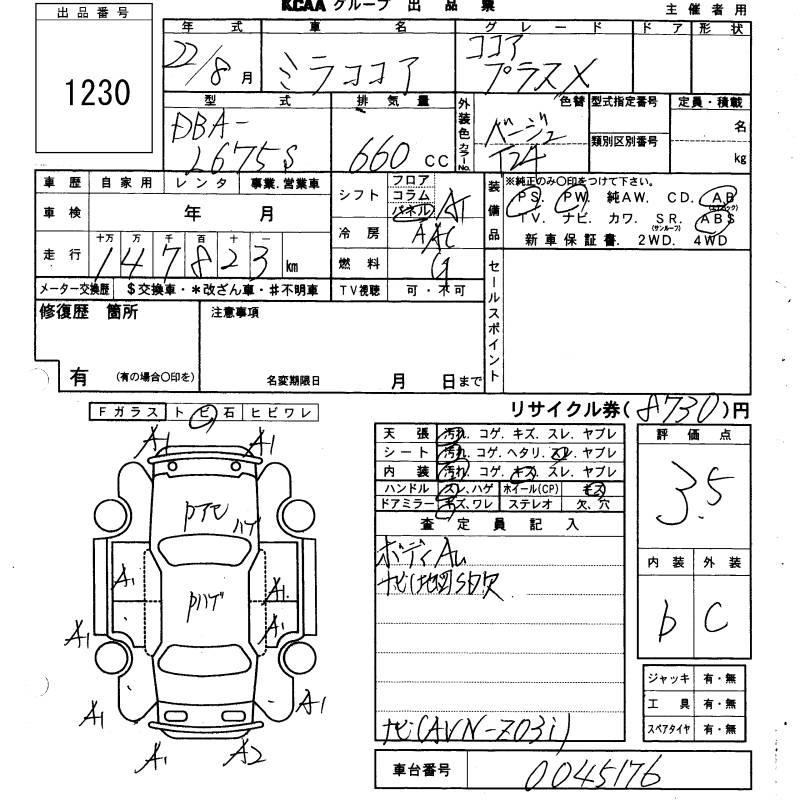 KCAA グループ 出 品 票
主 催 者 用
出 品 番 号
1230
年 式 車 名 グ レ ー ド ド ア 形 状
22/8 月 ミラココア ココア
プラスX
型 式 排 気 量 外装色 カラーNo. 色替 型式指定番号 定員・積載
DBA-
L675S 660 CC ベージュ
T24
名
類別区別番号
kg
車 歴 自 家 用 レ ン タ 事業.営業車
車 検 年 月
走 行 十万 万 千 百 十 一
147823 km
メーター交換歴 $交換車・*改ざん車・#不明車
シフト フロア
コラム
パネル AT
冷 房 AAC
燃 料 G
TV視聴 可 ・ 不 可
装備品 ※純正のみ〇印をつけて下さい。
PS. PW. 純AW. CD. AB
(エアバック)
TV. ナビ. カワ. SR. ABS
(サンルーフ)
新 車 保 証 書. 2WD. 4WD
セールスポイント
修復歴 箇所
有 (有の場合〇印を)
注意事項
名変期限日 月 日まで
リサイクル券( 8730 )円
Fガラス ト ビ 石 ヒビワレ
A1 A1
ハゲ
Pハゲ
A1 A1
A1
A1 A1
A1 A1
A1 A2
天 張 汚れ. コゲ. キズ. スレ. ヤブレ
シート 汚れ. コゲ. ヘタリ. スレ. ヤブレ
内 装 汚れ. コゲ. キズ. スレ. ヤブレ
ハンドル スレ. ハゲ ホイール(CP) キズ
ドアミラー キズ. ワレ ステレオ 欠. 穴
査 定 員 記 入
ボディAu
ナビ地図SD欠
ナビ(AVN-Z03i)
車台番号 0045176
評 価 点
3.5
内 装 外 装
b C
ジャッキ 有・無
工 具 有・無
スペアタイヤ 有・無